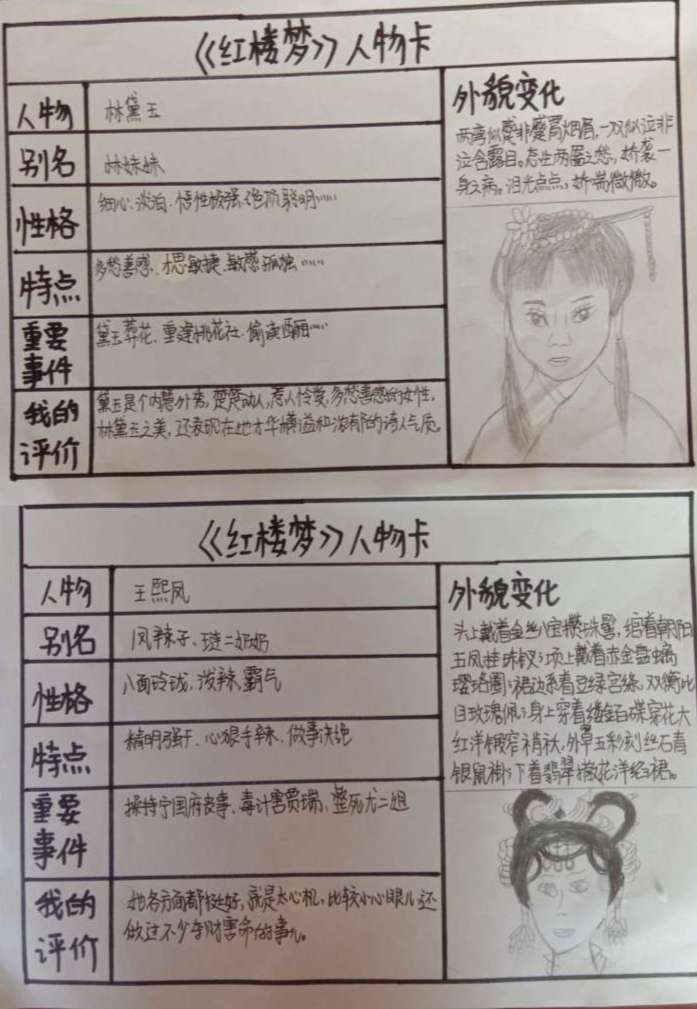 《红楼梦》人物卡
人物
林黛玉
别名
林妹妹
性格
细心、淡泊、悟性极强、绝顶聪明……
特点
多愁善感、才思敏捷、敏感孤独……
重要
事件
黛玉葬花、重建桃花社、偷读西厢……
我的
评价
黛玉是个内慧外秀，楚楚动人，惹人怜爱，多愁善感的女性。
林黛玉之美，还表现在她才华横溢和浓郁的诗人气质。
外貌变化
两湾似蹙非蹙罥烟眉，一双似泣非
泣含露目。态生两靥之愁，娇袭一
身之病。泪光点点，娇喘微微。
《红楼梦》人物卡
人物
王熙凤
别名
凤辣子、琏二奶奶
性格
八面玲珑，泼辣、霸气
特点
精明强干、心狠手辣、做事决绝
重要
事件
操持宁国府丧事、毒计害贾瑞、整死尤二姐
我的
评价
她各方面都挺好，就是太心机，比较小心眼儿还
做过不少夺财害命的事儿。
外貌变化
头上戴着金丝八宝攒珠髻，绾着朝阳
五凤挂珠钗；项上戴着赤金盘螭
璎珞圈；裙边系着豆绿宫绦，双衡比
目玫瑰佩；身上穿着缕金百碟穿花大
红洋缎窄裉袄，外罩五彩刻丝石青
银鼠褂；下着翡翠撒花洋绉裙。